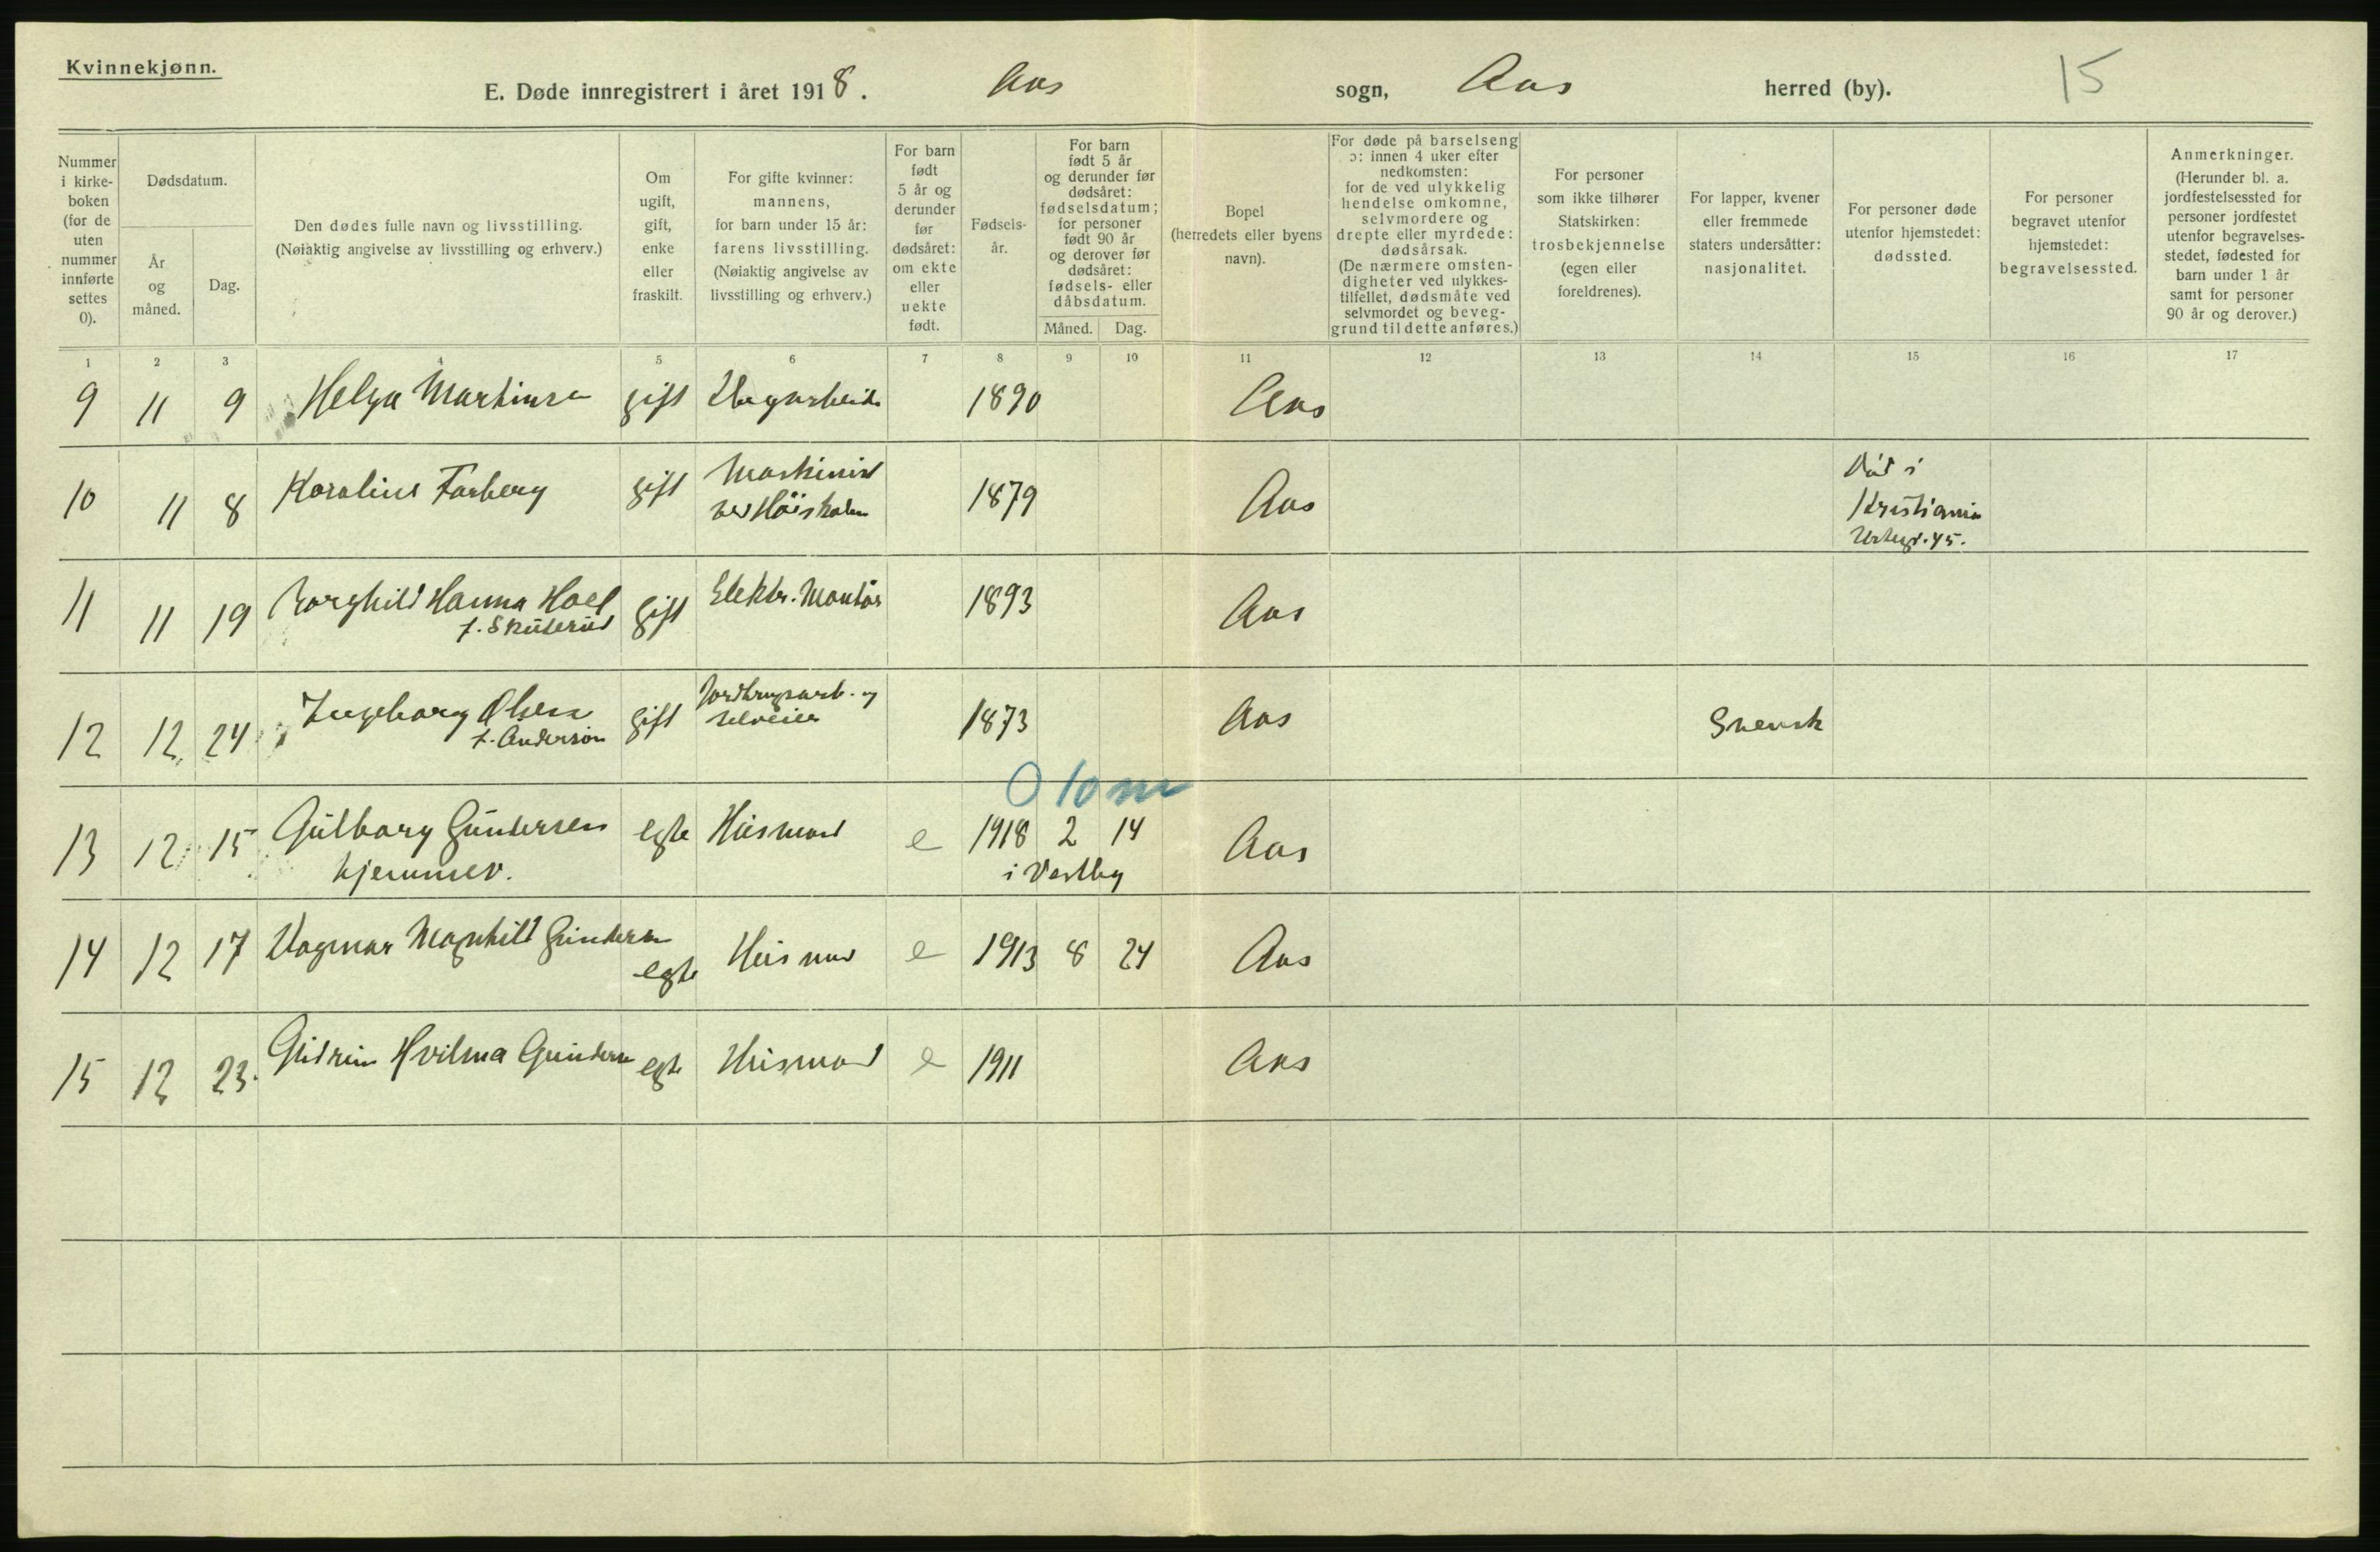 Kvinnekjønn.
E. Døde innregistrert i året 1918. Aas sogn, Aas herred (by). 15
Nummer i kirke-boken (for de uten nummer innførte settes 0).
Dødsdatum.
År og måned.
Dag.
Den dødes fulle navn og livsstilling.
(Nøiaktig angivelse av livsstilling og erhverv.)
Om ugift, gift, enke eller fraskilt.
For gifte kvinner: mannens, for barn under 15 år: farens livsstilling.
(Nøiaktig angivelse av livsstilling og erhverv.)
For barn født 5 år og derunder før dødsåret: om ekte eller uekte født.
Fødsels-år.
For barn født 5 år og derunder før dødsåret: fødselsdatum; for personer født 90 år og derover før dødsåret: fødsels- eller dåbsdatum.
Måned. Dag.
Bopel (herredets eller byens navn).
For døde på barselseng ɔ: innen 4 uker efter nedkomsten: for de ved ulykkelig hendelse omkomne, selvmordere og drepte eller myrdede: dødsårsak.
(De nærmere omsten-digheter ved ulykkes-tilfellet, dødsmåte ved selvmordet og beveg-grund til dette anføres.)
For personer som ikke tilhører Statskirken: trosbekjennelse (egen eller foreldrenes).
For lapper, kvener eller fremmede staters undersåtter: nasjonalitet.
For personer døde utenfor hjemstedet: dødssted.
For personer begravet utenfor hjemstedet: begravelsessted.
Anmerkninger.
(Herunder bl. a. jordfestelsessted for personer jordfestet utenfor begravelses-stedet, fødested for barn under 1 år samt for personer 90 år og derover.)
1 2 3 4 5 6 7 8 9 10 11 12 13 14 15 16 17
9 11 9 Helga Martinsen gift 1890 Aas
10 11 8 Karoline Farberg gift Maskinist ved Høiskolen 1879 Aas Død i Kristiania
11 11 19 Borghild Hanna Hoel f. Skuterud gift Elektr. Montør 1893 Aas
12 12 24 Ingeborg Olsen f. Anderson gift Jordbrugsarb. og selveier 1873 Aas Svensk
0 10 m
13 12 15 Gulborg Gundersen hjemmev. egte Husmand e 1918 2 14 i Vestby Aas
14 12 17 Dagmar Magnhild Gundersen egte Husmand e 1913 8 24 Aas
15 12 23. Gudrun Hvilma Gundersen egte Husmand e 1911 Aas